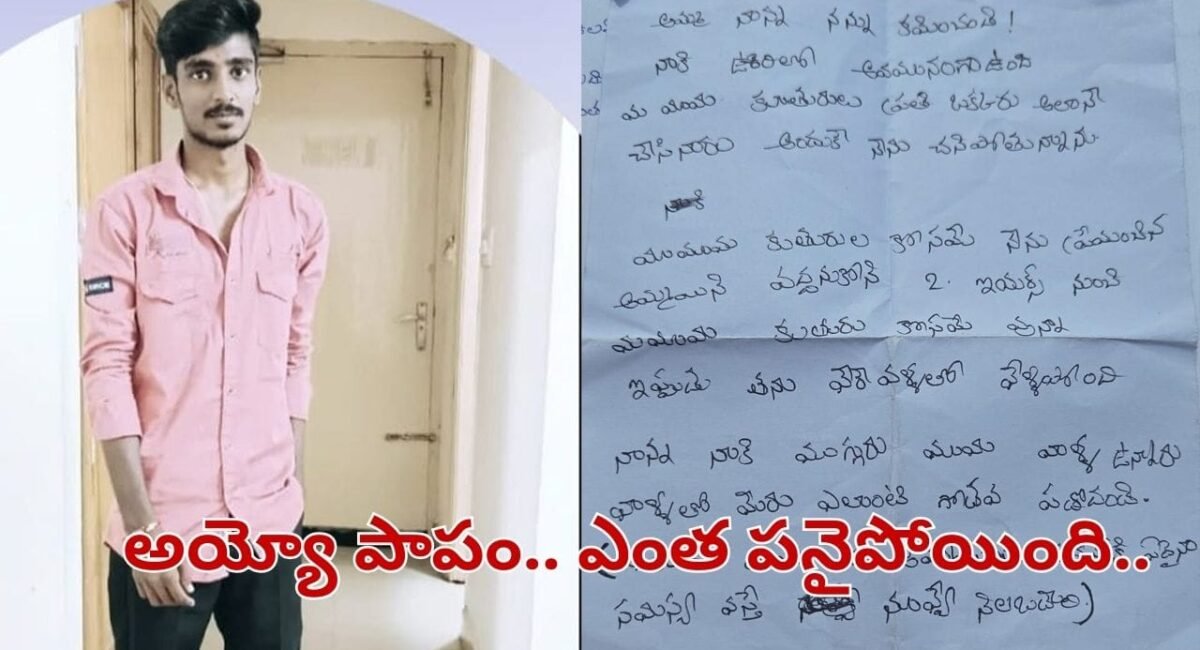 అమ్మ నాన్న నన్ను కమించండి !
నాకి ఊరిలో అవమానంగా ఉంది
కూతురులు ప్రతి ఒక్కరు అలానే
చేసినారు అందుకే నేను చనిపోతున్నాను
కుతురుల కోసమే నేను ప్రేమించిన
అమ్మాయిని వద్దనుకొని 2. ఇయర్స్ నుంచి
కుతురు కోసమే ఉన్నా
ఇప్పుడు తను వేరే వాళ్ళతో వెళ్ళిపోయింది
నాన్న నాకి ముగ్గురు మామ వాళ్ళు ఉన్నారు
వాళ్ళతో మీరు ఎలాంటి గొడవ పడొదండి.
అయ్యో పాపం.. ఎంత పనైపోయింది..
సమిస్యా వస్తే నువ్వే నిలబడాలి.)